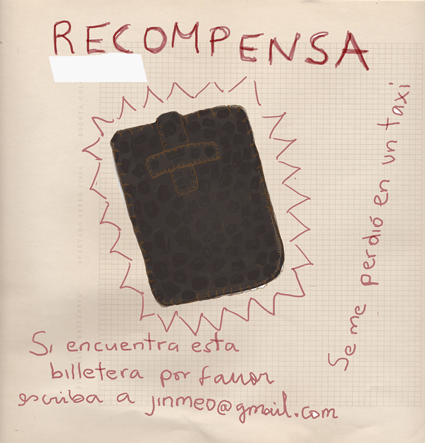 RECOMPENSA
Se me perdió en un taxi
Si encuentra esta
billetera por favor
escriba a jinmeo@gmail.com